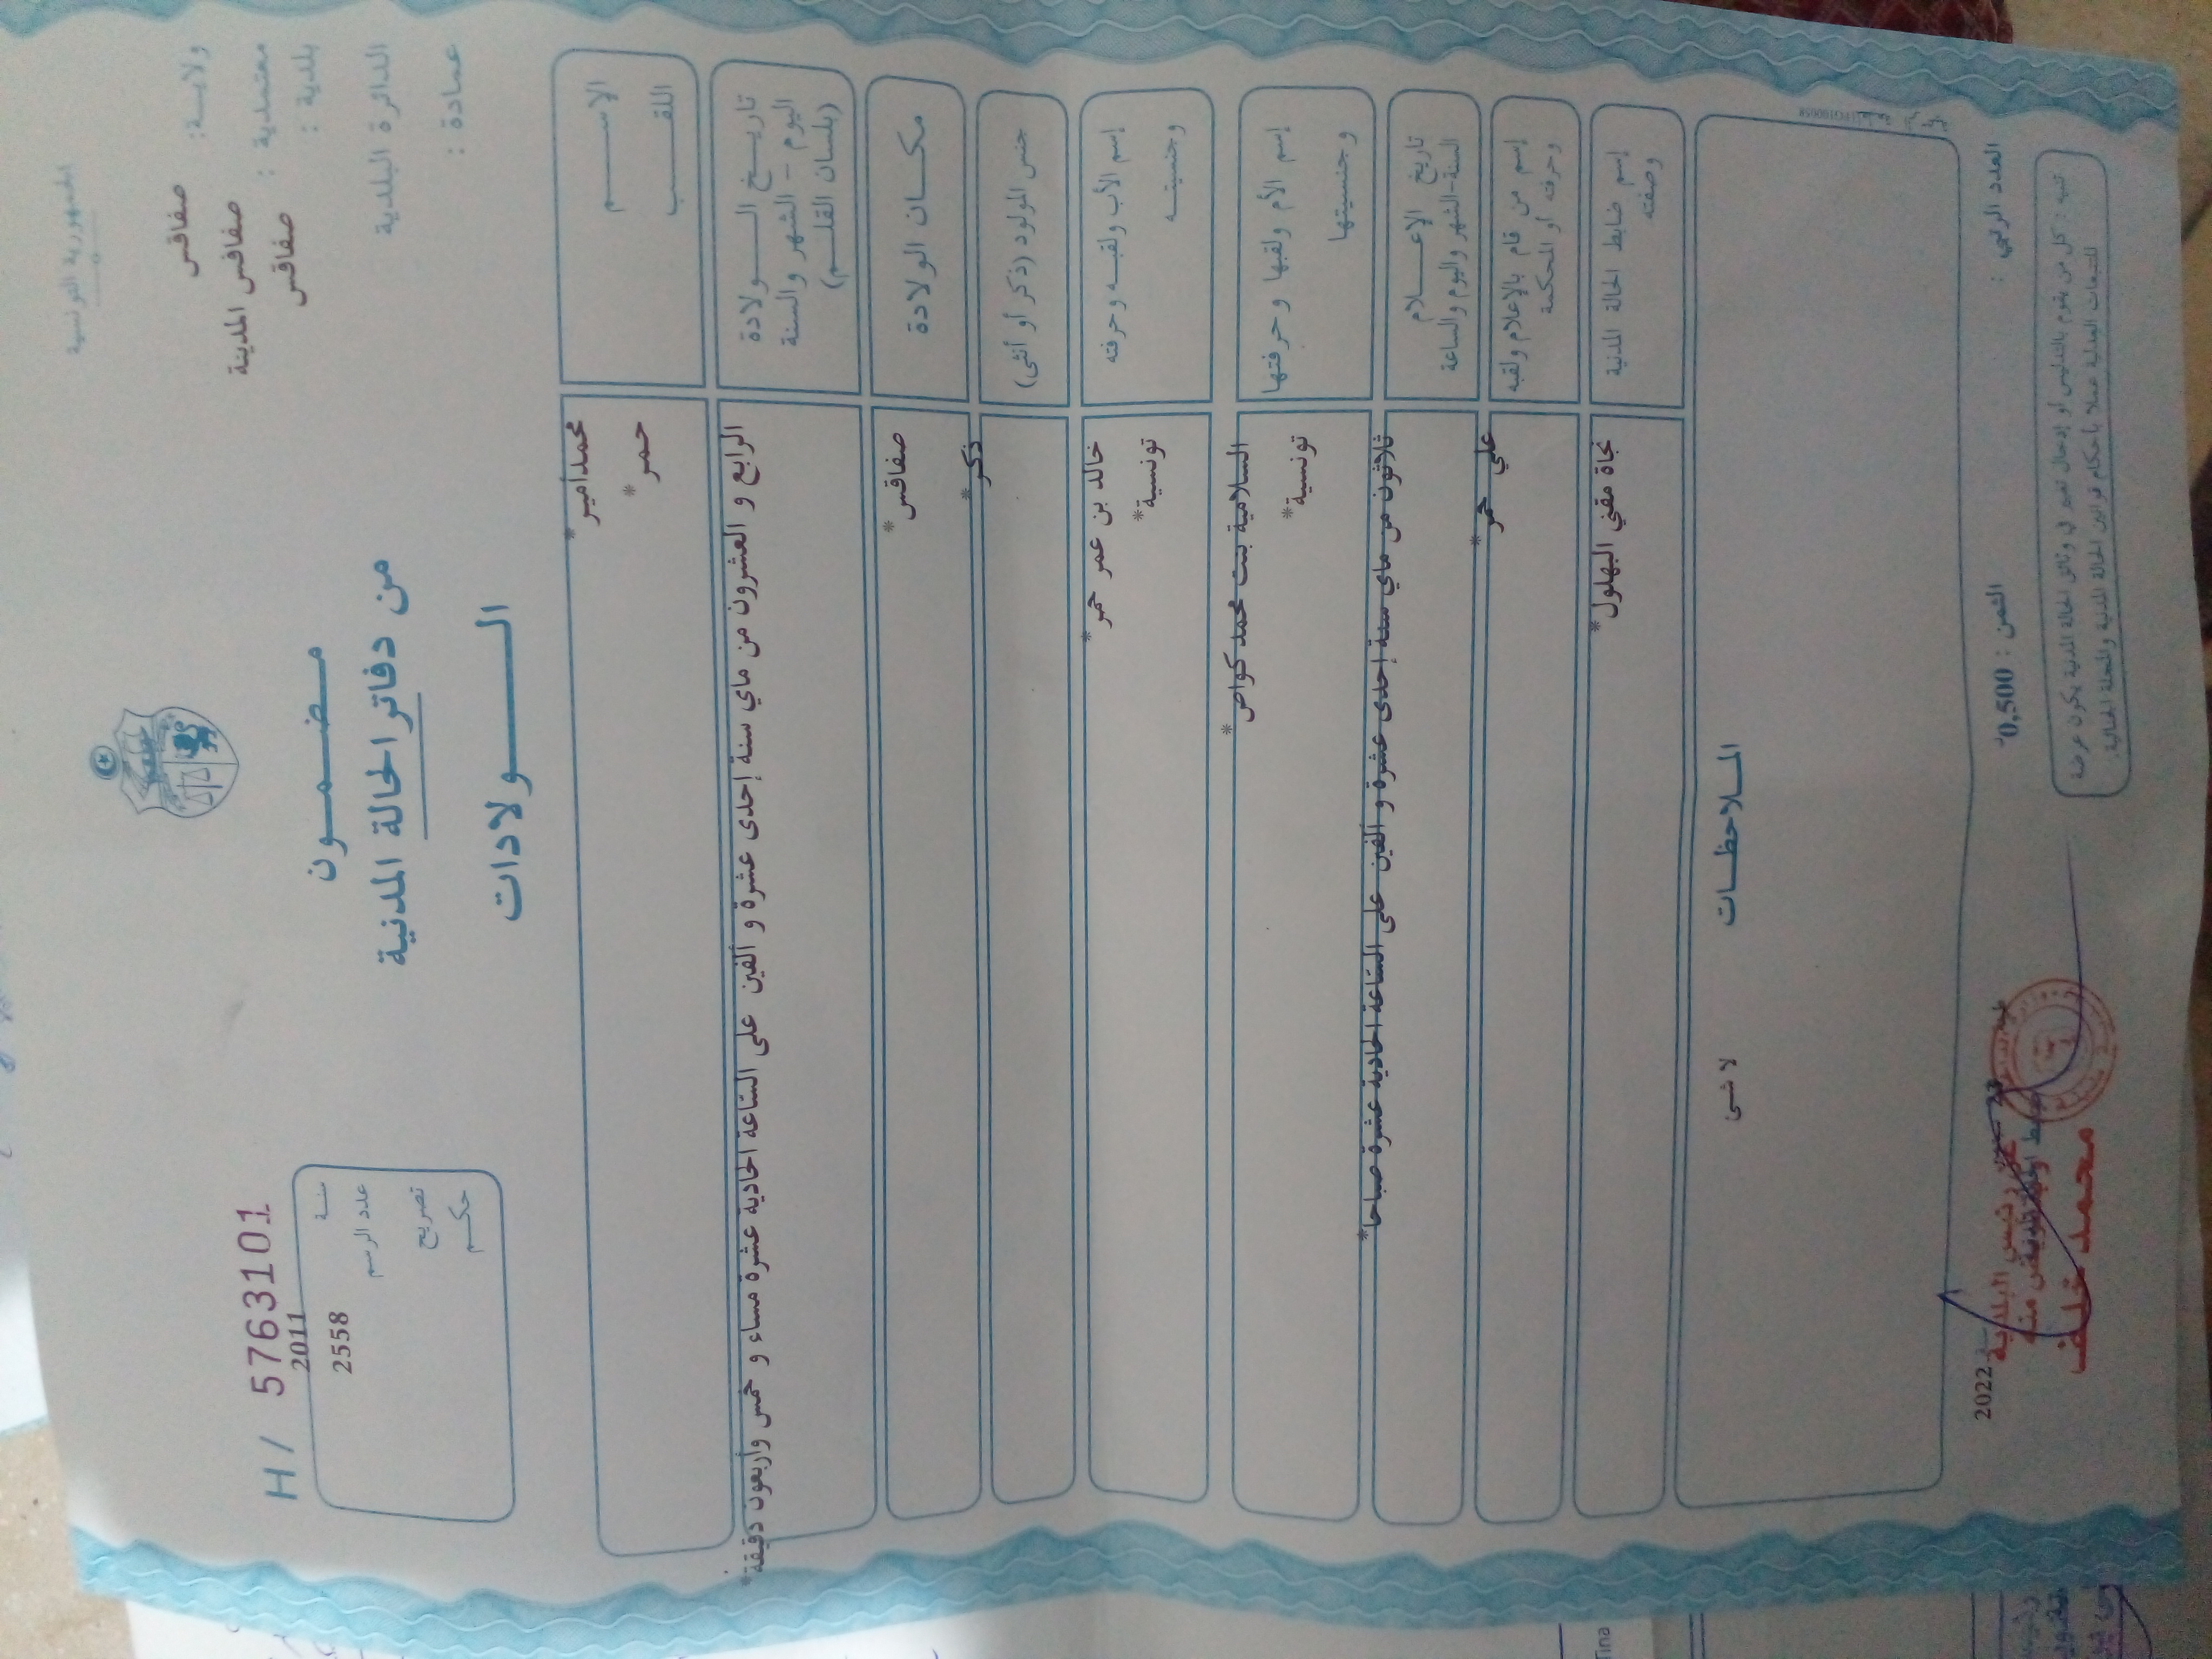 الجمهورية التونسية
ولاية: صفاقس
معتمدية : صفاقس المدينة
بلدية : صفاقس
الدائرة البلدية
عمادة :
H/ 5763101
سنة 2011
عدد الرسم 2558
تصريح
حكم
مضمون
من دفاتر الحالة المدنية
الولادات
الاسم محمدامير*
اللقب حمر*
تاريخ الولادة
اليوم - الشهر والسنة
(بلسان القلم)
الرابع و العشرون من ماي سنة إحدى عشرة و ألفين على الساعة الحادية عشرة مساء و خمس وأربعون دقيقة*
مكان الولادة صفاقس*
جنس المولود (ذكر أو أنثى) ذكر*
إسم الأب ولقبه وحرفته خالد بن عمر حمر*
وجنسيته تونسية*
إسم الأم ولقبها وحرفتها السلامية بنت محمد كواص*
وجنسيتها تونسية*
تاريخ الإعلام
السنة-الشهر واليوم والساعة
ثلاثون من ماي سنة إحدى عشرة و ألفين على الساعة الحادية عشرة صباحا*
إسم من قام بالإعلام ولقبه
وحرفته أو المحكمة
علي حمر*
إسم ضابط الحالة المدنية
وصفته
نجاة مقني البهلول*
الملاحظات
لا شئ
العدد الرتبي :
الثمن : 0,500د
تنبيه : كل من يقوم بالتدليس أو إدخال تغيير في وثائق الحالة المدنية يكون عرضة
للتبعات العدلية عملا بأحكام قوانين الحالة المدنية والمجلة الجنائية.
2022
عن رئيس البلدية
محمد خلف